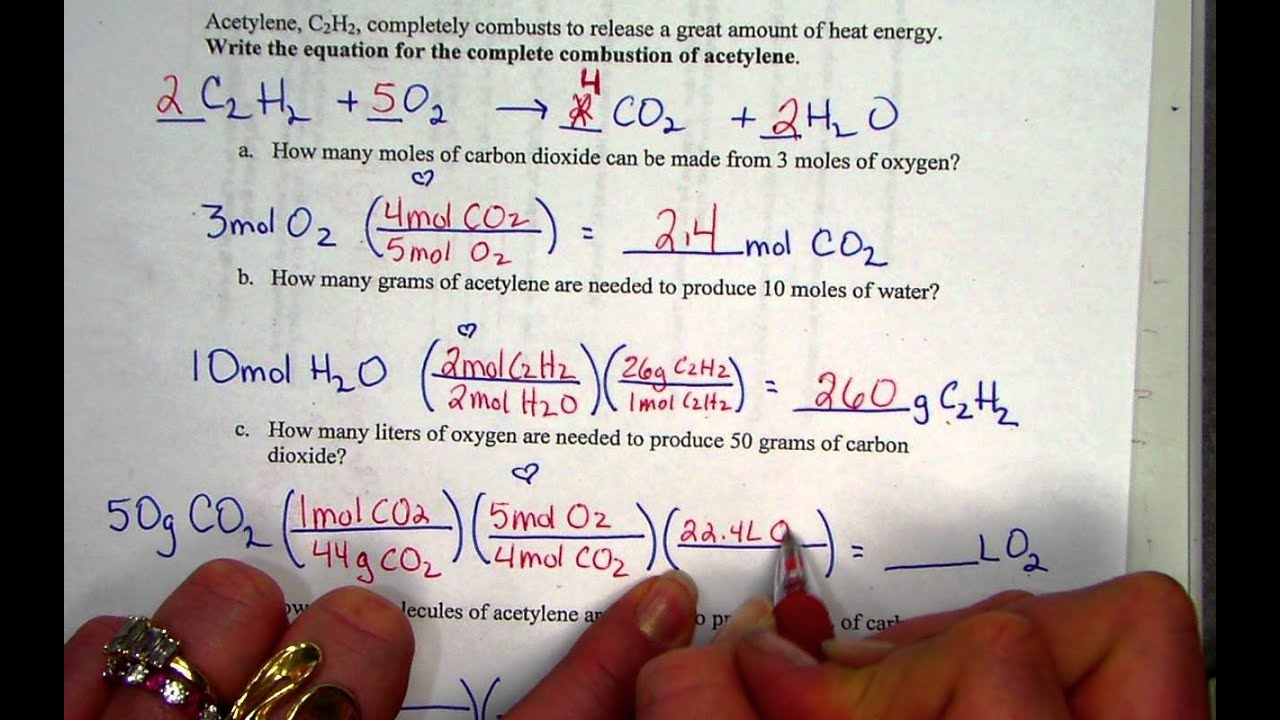 Acetylene, C₂H₂, completely combusts to release a great amount of heat energy.
Write the equation for the complete combustion of acetylene.
4
2 C₂H₂ + 5O₂ → 2 CO₂ + 2H₂O
a. How many moles of carbon dioxide can be made from 3 moles of oxygen?
3mol O₂ (4mol CO₂ / 5mol O₂) = 2.4 mol CO₂
b. How many grams of acetylene are needed to produce 10 moles of water?
10mol H₂O (2mol C₂H₂ / 2mol H₂O)(26g C₂H₂ / 1mol C₂H₂) = 260 g C₂H₂
c. How many liters of oxygen are needed to produce 50 grams of carbon
dioxide?
50g CO₂ (1mol CO₂ / 44g CO₂)(5mol O₂ / 4mol CO₂)(22.4L O / ) = ___ L O₂
lecules of acetylene of